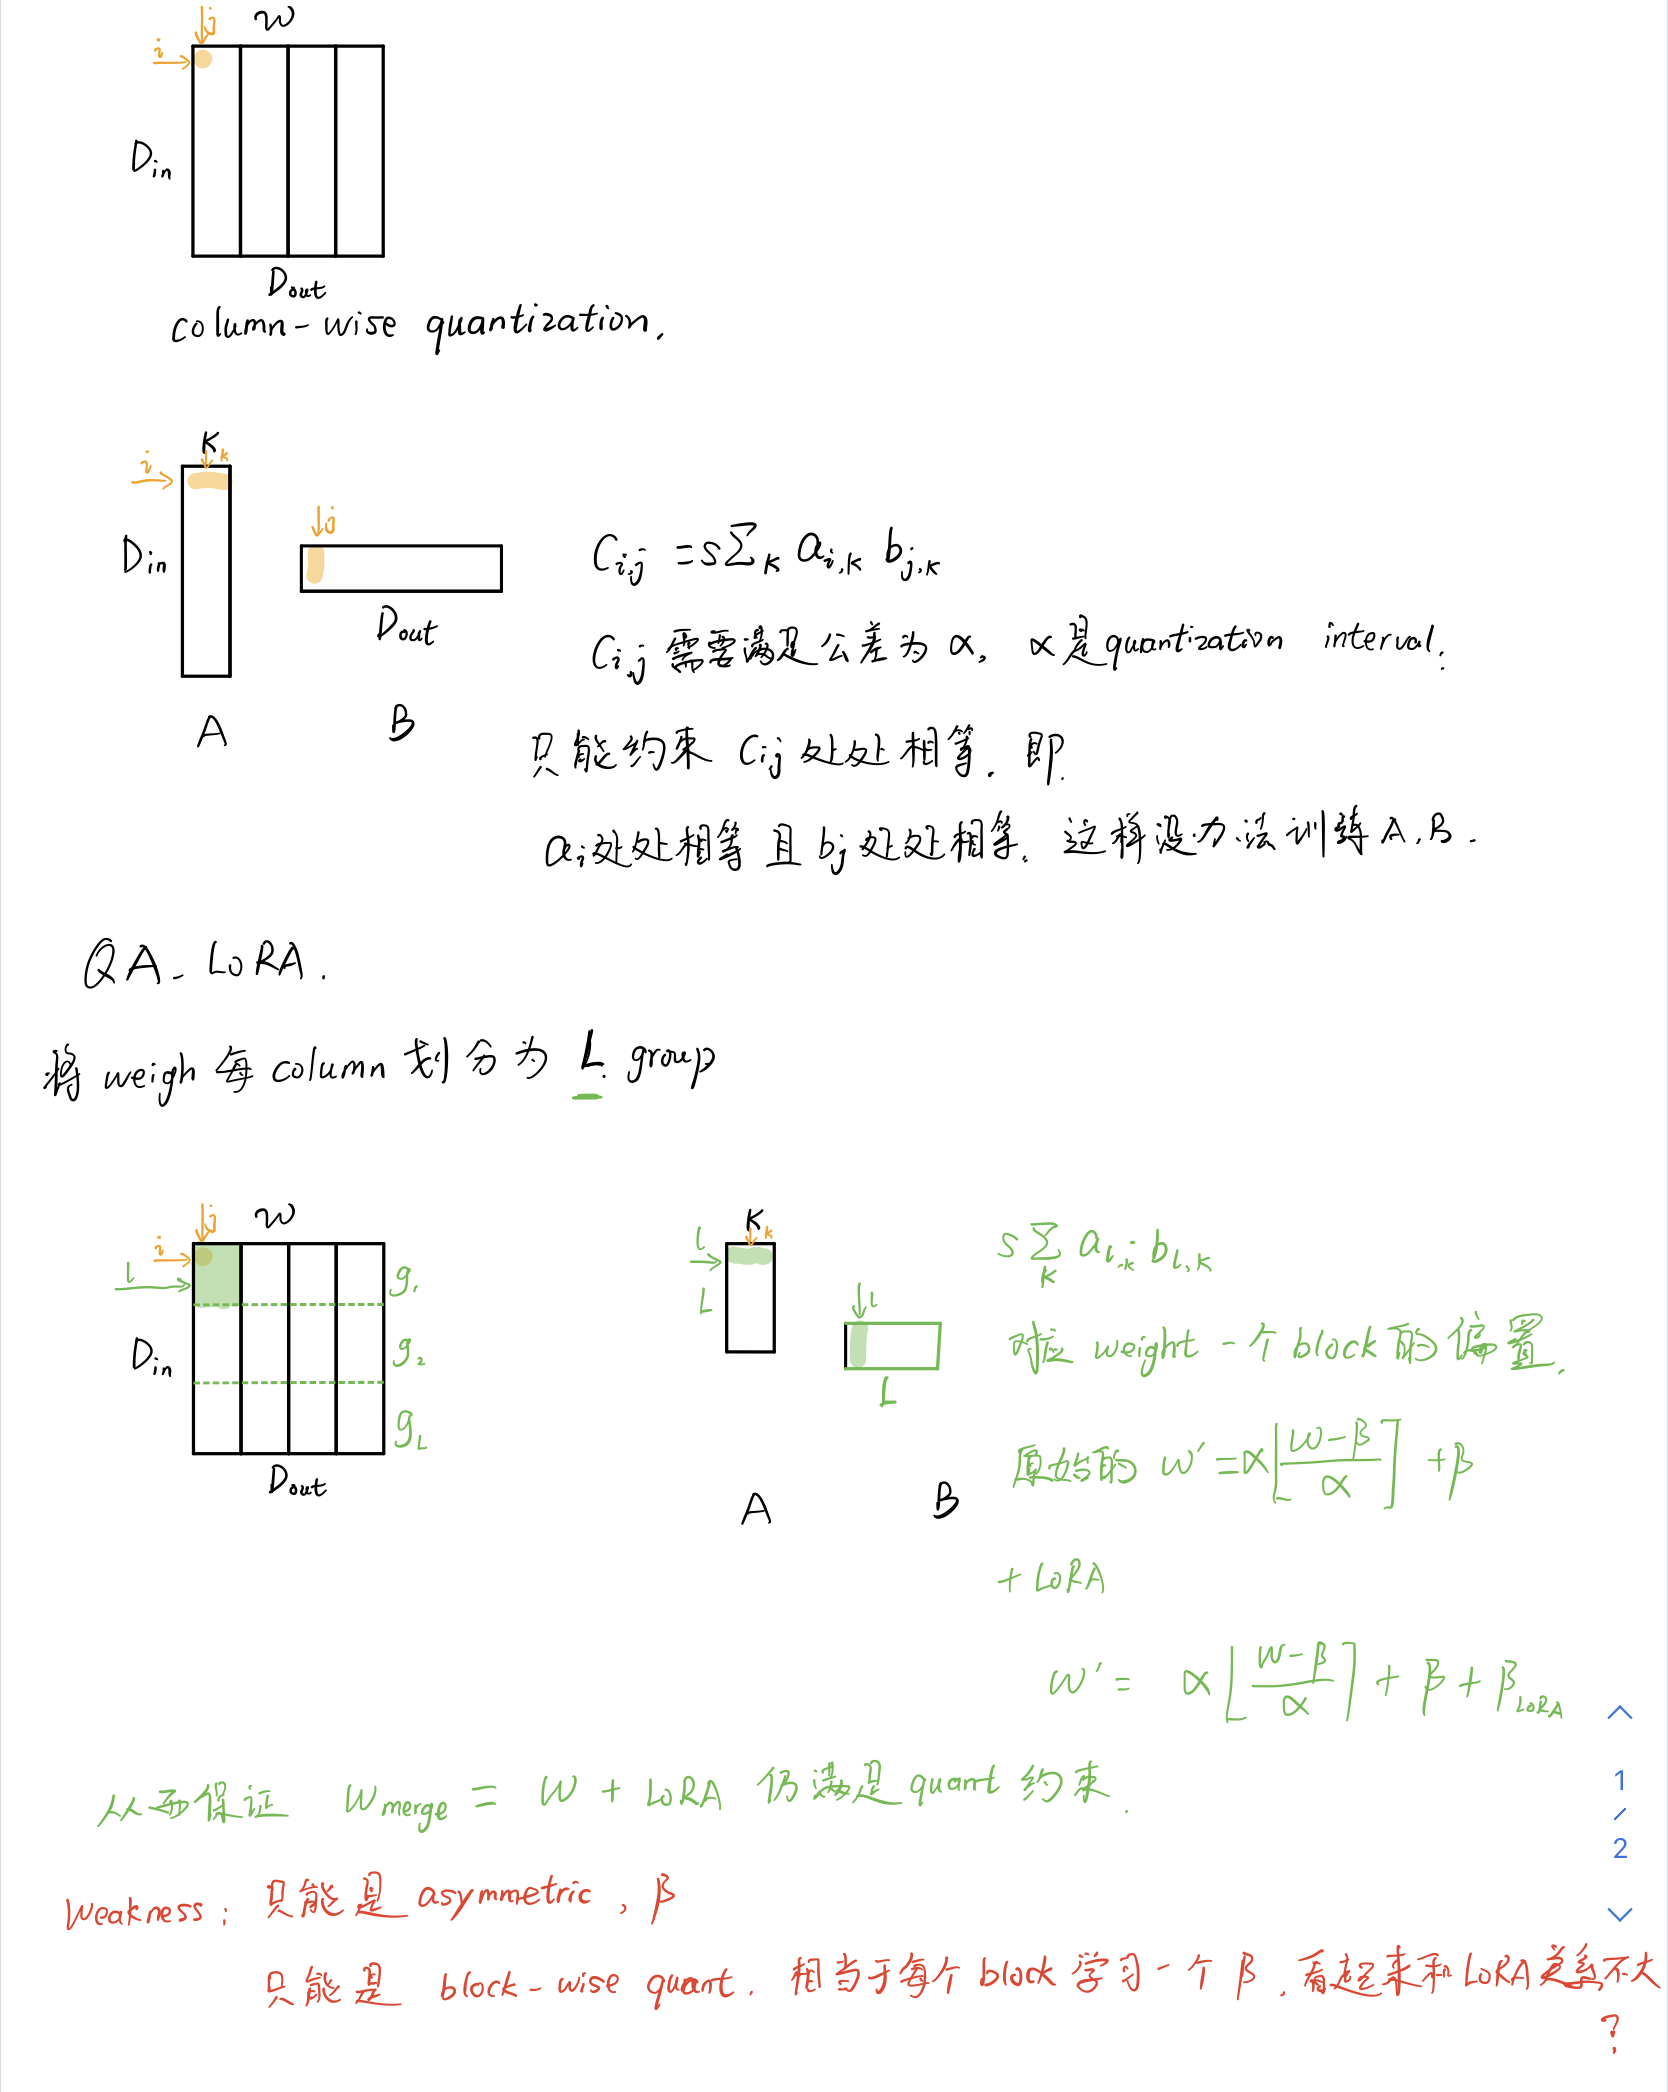 j W
i
Din
Dout
column-wise quantization.
K
i k
j
Din
Dout
A B
Ci,j = s∑K ai,k bj,k
Ci,j 需要满足公差为 α, α是quantization interval.
只能约束 Cij 处处相等. 即.
ai处处相等 且 bj处处相等. 这样没办法训练A.B.
QA-LoRA.
将 weigh 每 column 划分为 L group
j W
i
l
g1
Din
g2
gL
Dout
K
l k
L
l
L
A B
s∑K al,k bl,k
对应 weight 一个 block 的偏置.
原始的 w' = α⌊(w-β)/α⌉ + β
+ LoRA
w' = α⌊(w-β)/α⌉ + β + βLoRA
从而保证 Wmerge = W + LoRA 仍满足 quant 约束.
Weakness: 只能是 asymmetric, β
只能是 block-wise quant. 相当于每个 block 学习一个 β. 看起来和 LoRA 关系不大
?
1
/
2